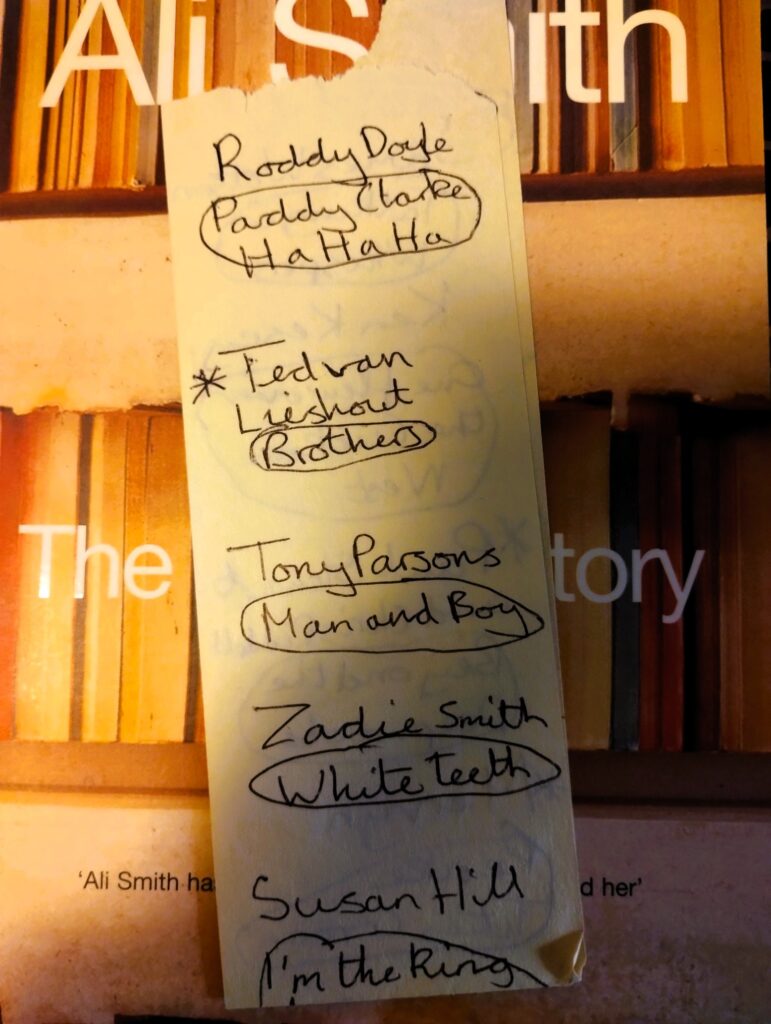 Ali S ith
Roddy Doyle
Paddy Clarke
Ha Ha Ha
* Ted van
Lieshout
Brothers
The tory
Tony Parsons
Man and Boy
Zadie Smith
White Teeth
'Ali Smith ha d her'
Susan Hill
I'm the King